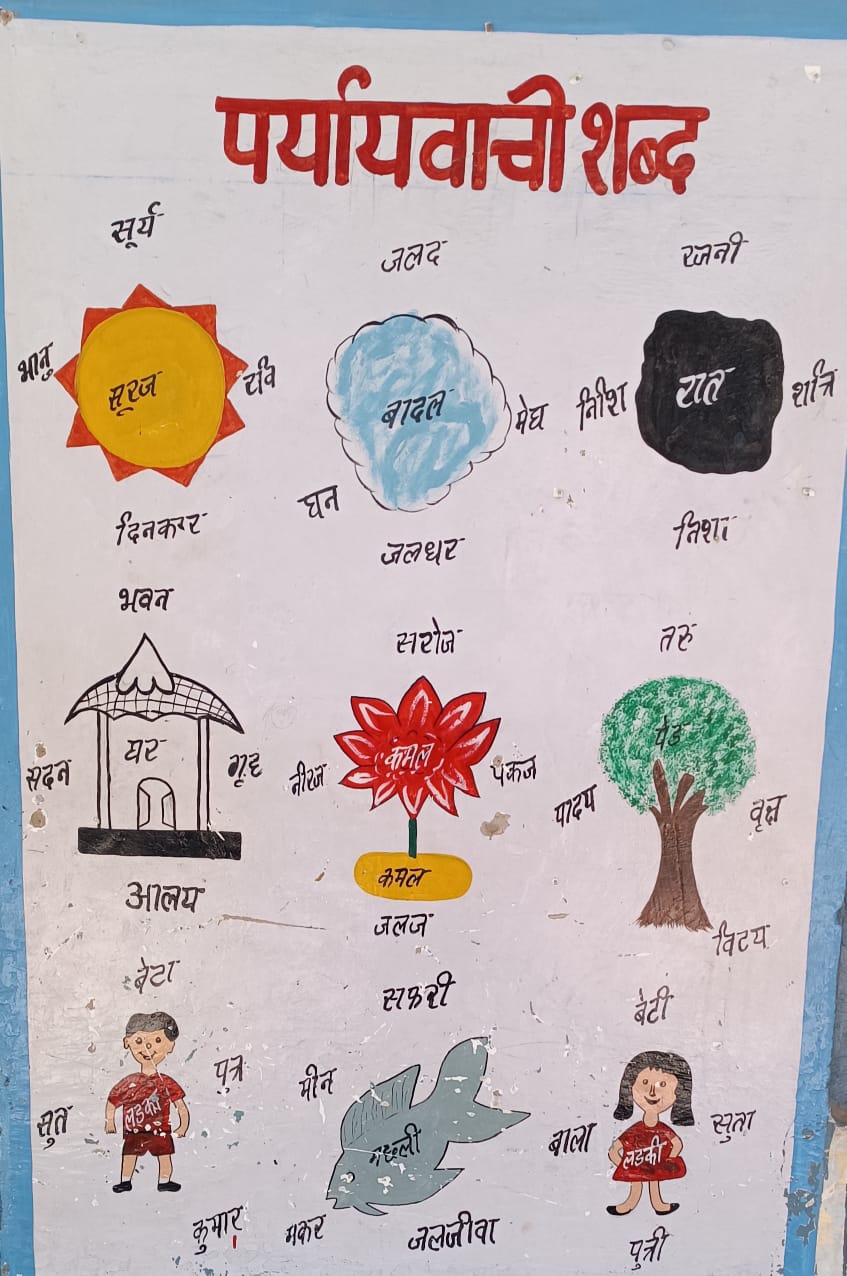 पर्यायवाची शब्द
सूर्य
भानु
सूरज
रवि
दिनकर
जलद
बादल
मेघ
घन
जलधर
रजनी
निशि
रात
रात्रि
निशा
भवन
सदन
घर
गृह
आलय
सरोज
नीरज
कमल
पंकज
कमल
जलज
तरु
पेड
पादप
वृक्ष
विटप
बेटा
पुत्र
सुत
लडका
कुमार
सफरी
मीन
मछली
मकर
जलजीवा
बेटी
बाला
लडकी
सुता
पुत्री